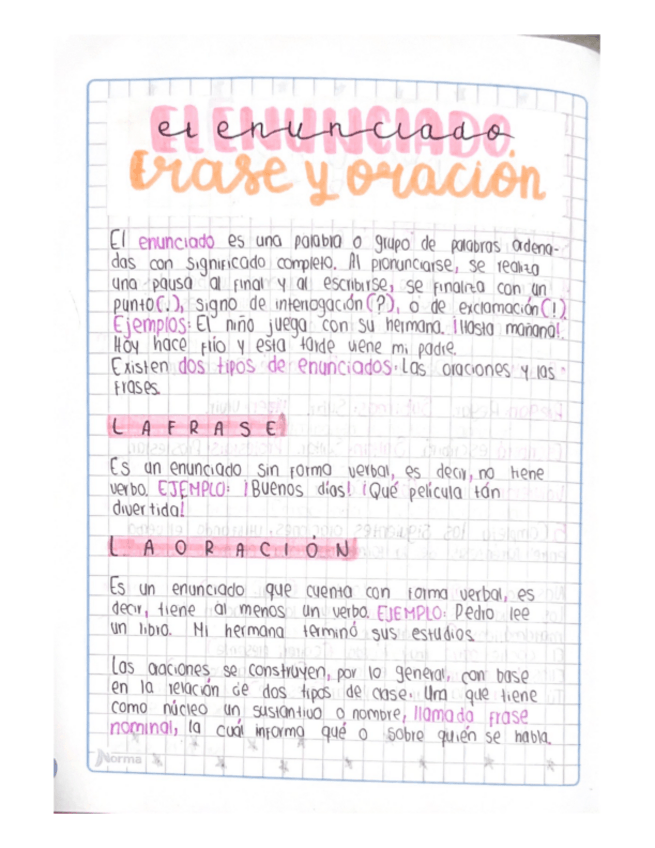 EL ENUNCIADO
el enunciado
Frase y oración
El enunciado es una palabra o grupo de palabras ordena-
das con significado completo. Al pronunciarse, se realiza
una pausa al final y al escribirse, se finaliza con un
punto(.), signo de interrogación(?), o de exclamación(!)
Ejemplos: El niño juega con su hermana. ¡Hasta mañana!.
Hoy hace frío y esta tarde viene mi padre.
Existen dos tipos de enunciados. Las oraciones y las
frases.
LA FRASE
Es un enunciado sin forma verbal, es decir, no tiene
verbo. EJEMPLO: ¡Buenos días! ¡Qué película tán
divertida!
LA ORACIÓN
Es un enunciado que cuenta con forma verbal, es
decir, tiene al menos un verbo. EJEMPLO: Pedro lee
un libro. Mi hermana terminó sus estudios
Las oraciones se construyen, por lo general, con base
en la relación de dos tipos de clase. Una que tiene
como núcleo un sustantivo o nombre, llamada frase
nominal, la cuál informa qué o sobre quién se habla.
Norma